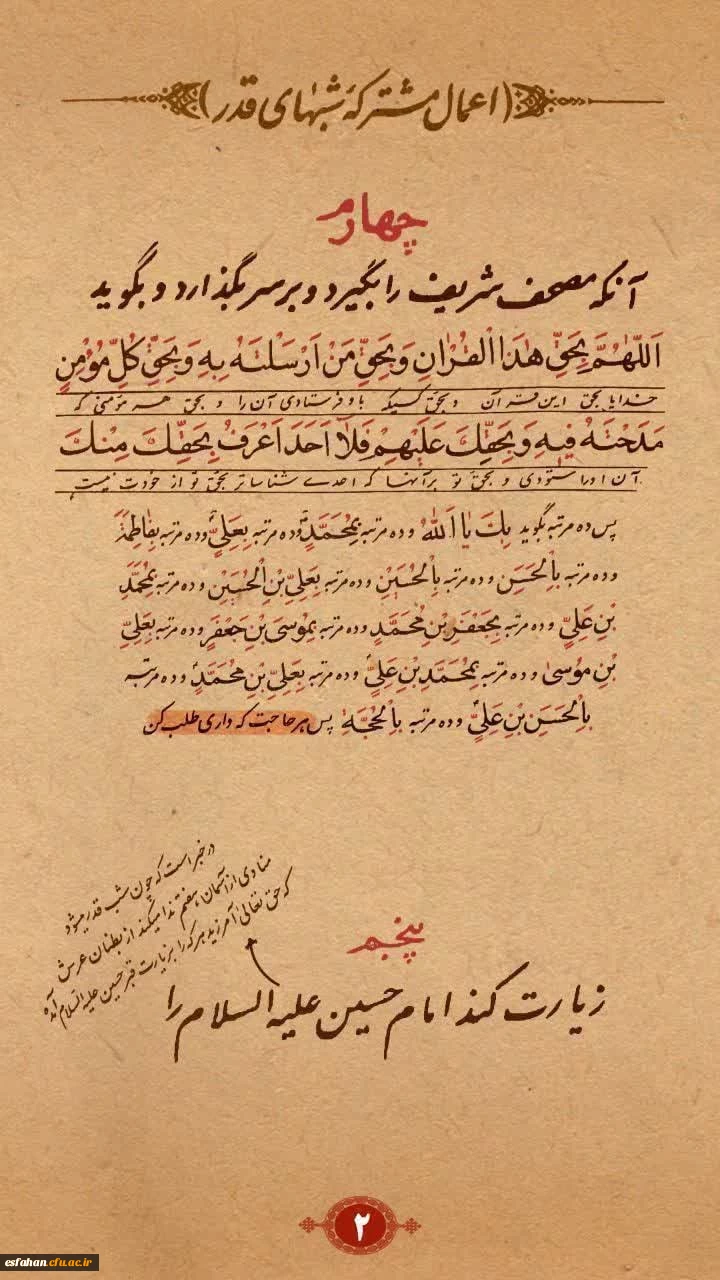 (اعمال مشترکهٔ شبهای قدر)
چهارم
آنکه مصحف شریف را بگیرد و بر سر بگذارد و بگوید
اَللّٰهُمَّ بِحَقِّ هٰذَا الْقُرْاٰنِ وَ بِحَقِّ مَنْ اَرْسَلْتَهُ بِهِ وَ بِحَقِّ كُلِّ مُؤْمِنٍ
خدایا بحق این قرآن و بحق کسیکه با او فرستادی آن را و بحق هر مؤمنی که
مَدَحْتَهُ فِيهِ وَ بِحَقِّكَ عَلَيْهِمْ فَلاٰ اَحَدَ اَعْرَفُ بِحَقِّكَ مِنْكَ
آن او را ستودی و بحق تو بر آنها که احدے شناساتر بحق تو از خودت نیست
پس ده مرتبه بگوید بِكَ يٰا اَللّٰهُ و ده مرتبه بِمُحَمَّدٍ و ده مرتبه بِعَلِيٍّ و ده مرتبه بِفٰاطِمَةَ
و ده مرتبه بِالْحَسَنِ و ده مرتبه بِالْحُسَيْنِ و ده مرتبه بِعَلِيِّ بْنِ الْحُسَيْنِ و ده مرتبه بِمُحَمَّدِ
بْنِ عَلِيٍّ و ده مرتبه بِجَعْفَرِ بْنِ مُحَمَّدٍ و ده مرتبه بِمُوسَى بْنِ جَعْفَرٍ و ده مرتبه بِعَلِيِّ
بْنِ مُوسىٰ و ده مرتبه بِمُحَمَّدِ بْنِ عَلِيٍّ و ده مرتبه بِعَلِيِّ بْنِ مُحَمَّدٍ و ده مرتبه
بِالْحَسَنِ بْنِ عَلِيٍّ و ده مرتبه بِالْحُجَّةِ پس هر حاجت که داری طلب کن
در خبر است که چون شب قدر میشود
منادی از آسمان هفتم ندا میکند از بطنان عرش
که حق تعالیٰ آمرزید هر که را بزیارت قبر حسین علیه السلام آمده
پنجم
زیارت کند امام حسین علیه السلام را
۲
esfahan.cfu.ac.ir